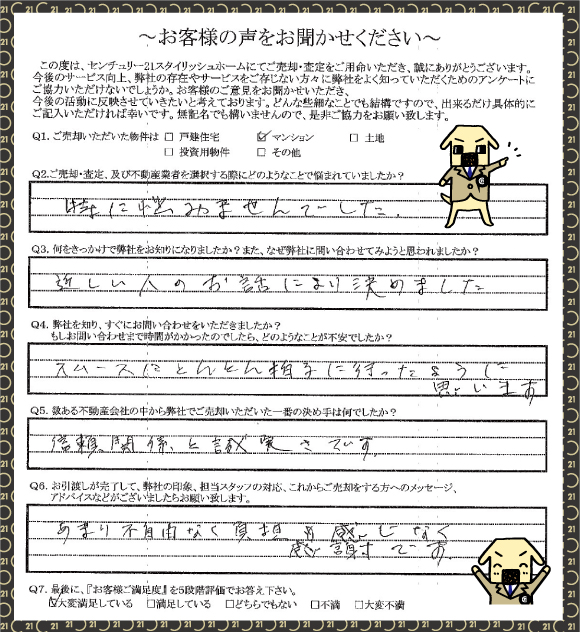 ～お客様の声をお聞かせください～
この度は、センチュリー21スタイリッシュホームにてご売却・査定をご用命いただき、誠にありがとうございます。
今後のサービス向上、弊社の存在やサービスをご存じない方々に弊社をよく知っていただくためのアンケートに
ご協力いただけないでしょうか。お客様のご意見をお聞かせいただき、
今後の活動に反映させていきたいと考えております。どんな些細なことでも結構ですので、出来るだけ具体的に
ご記入いただければ幸いです。無記名でも構いませんので、是非ご協力をお願い致します。
Q1. ご売却いただいた物件は □ 戸建住宅 ☑ マンション □ 土地
□ 投資用物件 □ その他
Q2.ご売却・査定、及び不動産業者を選択する際にどのようなことで悩まれていましたか？
特に悩みませんでした.
Q3. 何をきっかけで弊社をお知りになりましたか？また、なぜ弊社に問い合わせてみようと思われましたか？
近しい人のお話により決めました
Q4. 弊社を知り、すぐにお問い合わせをいただきましたか？
もしお問い合わせまで時間がかかったのでしたら、どのようなことが不安でしたか？
スムースにとんとん拍子に行ったように
思います
Q5. 数ある不動産会社の中から弊社でご売却いただいた一番の決め手は何でしたか？
信頼関係と誠実さです
Q6. お引渡しが完了して、弊社の印象、担当スタッフの対応、これからご売却をする方へのメッセージ、
アドバイスなどがございましたらお願い致します。
あまり不自由なく負担も感じなく
感謝です.
Q7. 最後に、『お客様ご満足度』を5段階評価でお答え下さい。
☑大変満足している □満足している □どちらでもない □不満 □大変不満